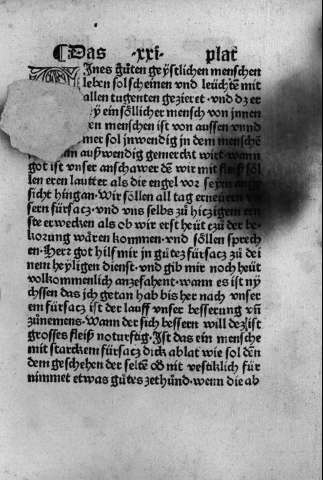 ¶ Das ·xxi· plat
Jnes gůten geystlichen menschen
leben sol scheinen vnd leüchtẽ mit
allen tugenten gezieret · vnd dz er
ey ein söllicher mensch von jnnen
en menschen ist von aussen vnnd
mer sol jnwendig in dem menschẽ
außwendig gemerckt wirt wann
got ist vnser anschawer dẽ wir mit fleiß söl
len eren lautter als die engel vor seym ange
sicht hingan. Wir söllen all tag erneüren vn
sern fürsatz · vnd vns selbs zů hitzigem ern
ste erwecken als ob wir erst heüt czů der be
korung wären kommen · vnd söllen sprech
en · Herr got hilf mir jn gůtẽ fürsatz zů dei
nem heyligen dienst · vnd gib mir noch heüt
volkommenlich anzefahent · wann es ist ny
chssen das jch getan hab bis her nach vnser
em fürsatz ist der lauff vnser besserung vñ
zůnemens · Wann der sich bessern will dez ist
grosses fleiß noturftig · Jst das ein mensche
mit starckem fürsatz dick ablat wie sol den
dem geschehen der seltẽ ob nit vestiklich für
nimmet etwas gůtes zethůnd · wenn die ab